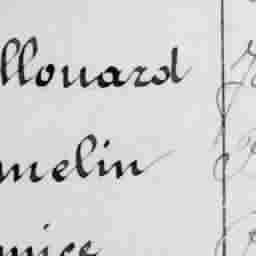 llouard
melin
mice